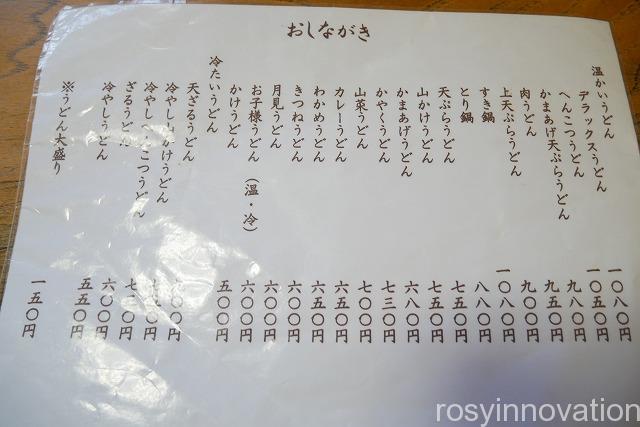 おしながき
温かいうどん
デラックスうどん 一〇八〇円
へんこつうどん 一〇五〇円
かまあげ天ぷらうどん 九八〇円
肉うどん 九五〇円
上天ぷらうどん 九〇〇円
すき鍋 一〇八〇円
とり鍋 八八〇円
天ぷらうどん 七五〇円
山かけうどん 七五〇円
かまあげうどん 六八〇円
かやくうどん 七三〇円
山菜うどん 七〇〇円
カレーうどん 六五〇円
わかめうどん 六五〇円
きつねうどん 六〇〇円
月見うどん 六〇〇円
お子様うどん（温・冷） 六〇〇円
かけうどん 五〇〇円
冷たいうどん
天ざるうどん
冷やし山かけうどん
冷やしへんこつうどん
ざるうどん 六〇〇円
冷やしうどん 五五〇円
※うどん大盛り 一五〇円
rosyinnovation